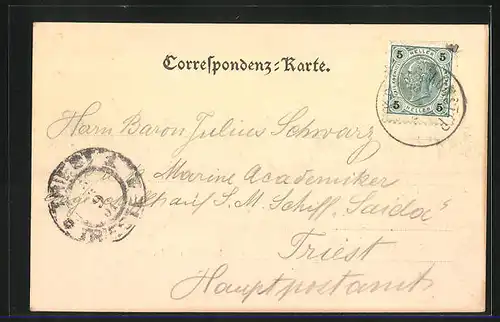 Correspondenz-Karte.
5 HELLER 5
5 HELLER 5
Herrn Baron Julius Schwarz
Marine Academiker
auf S. M. Schiff „Saida“
Triest
Hauptpostamt
TRIEST